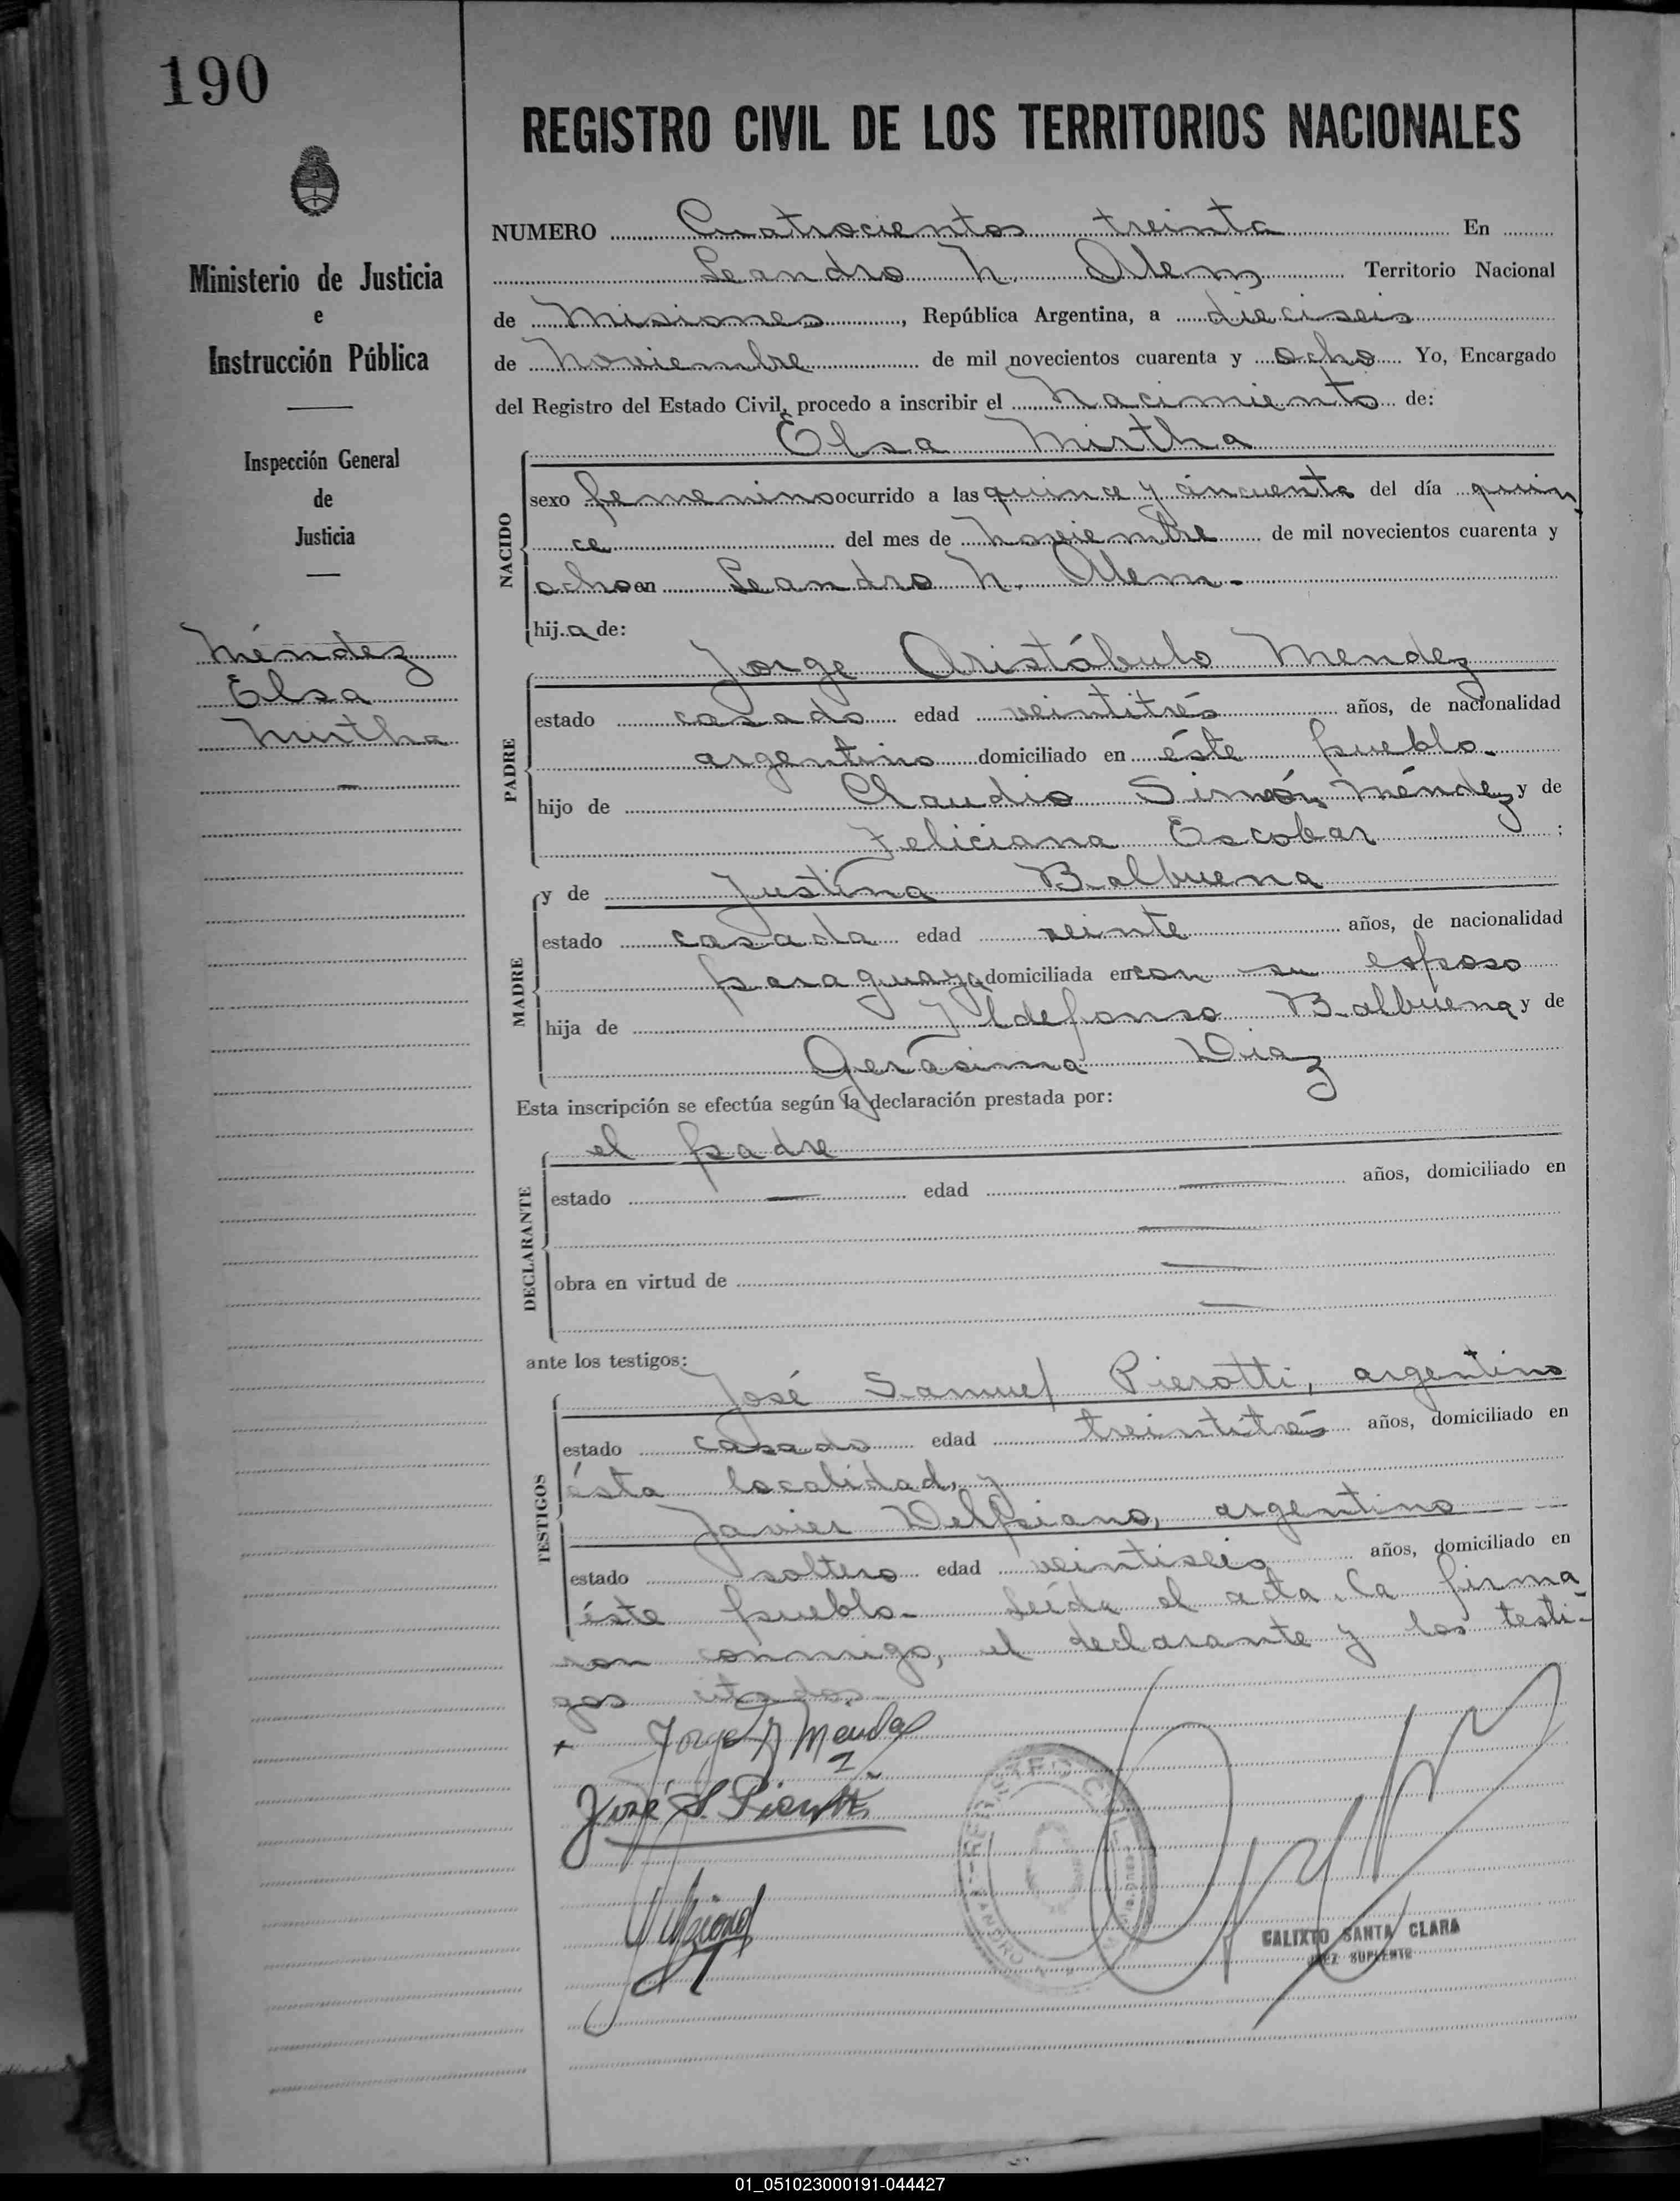 190
REGISTRO CIVIL DE LOS TERRITORIOS NACIONALES
Ministerio de Justicia
e
Instrucción Pública
Inspección General
de
Justicia
Méndez
Elsa
Mirtha
NUMERO Cuatrocientos treinta En
Leandro N. Alem Territorio Nacional
de Misiones, República Argentina, a dieciseis
de Noviembre de mil novecientos cuarenta y ocho Yo, Encargado
del Registro del Estado Civil, procedo a inscribir el Nacimiento de:
Elsa Mirtha
NACIDO
sexo femenino ocurrido a las quince y cincuenta del día quin
ce del mes de Noviembre de mil novecientos cuarenta y
ocho en Leandro N. Alem.-
hija de:
Jorge Aristábulo Mendez
PADRE
estado casado edad veintitrés años, de nacionalidad
argentino domiciliado en éste pueblo.-
hijo de Claudio Simeón Méndez y de
Feliciana Escobar ;
y de Justina Balbuena
MADRE
estado casada edad veinte años, de nacionalidad
paraguaya domiciliada en con su esposo
hija de Ildefonso Balbuena y de
Gerasima Diaz
Esta inscripción se efectúa según la declaración prestada por:
el padre
DECLARANTE
estado — edad — años, domiciliado en
—
obra en virtud de —
—
ante los testigos:
José Samuel Pierotti, argentino
TESTIGOS
estado casado edad treintitrés años, domiciliado en
ésta localidad, y
Javier Delpiano, argentino
estado soltero edad veintiseis años, domiciliado en
éste pueblo.- Leída el acta, la firma
ron conmigo, el declarante y los testi-
gos citados
Jorge A Mendez
José S. Pierotti
REGISTRO CIVIL
CALIXTO SANTA CLARA
JUEZ SUPLENTE
01_051023000191-044427